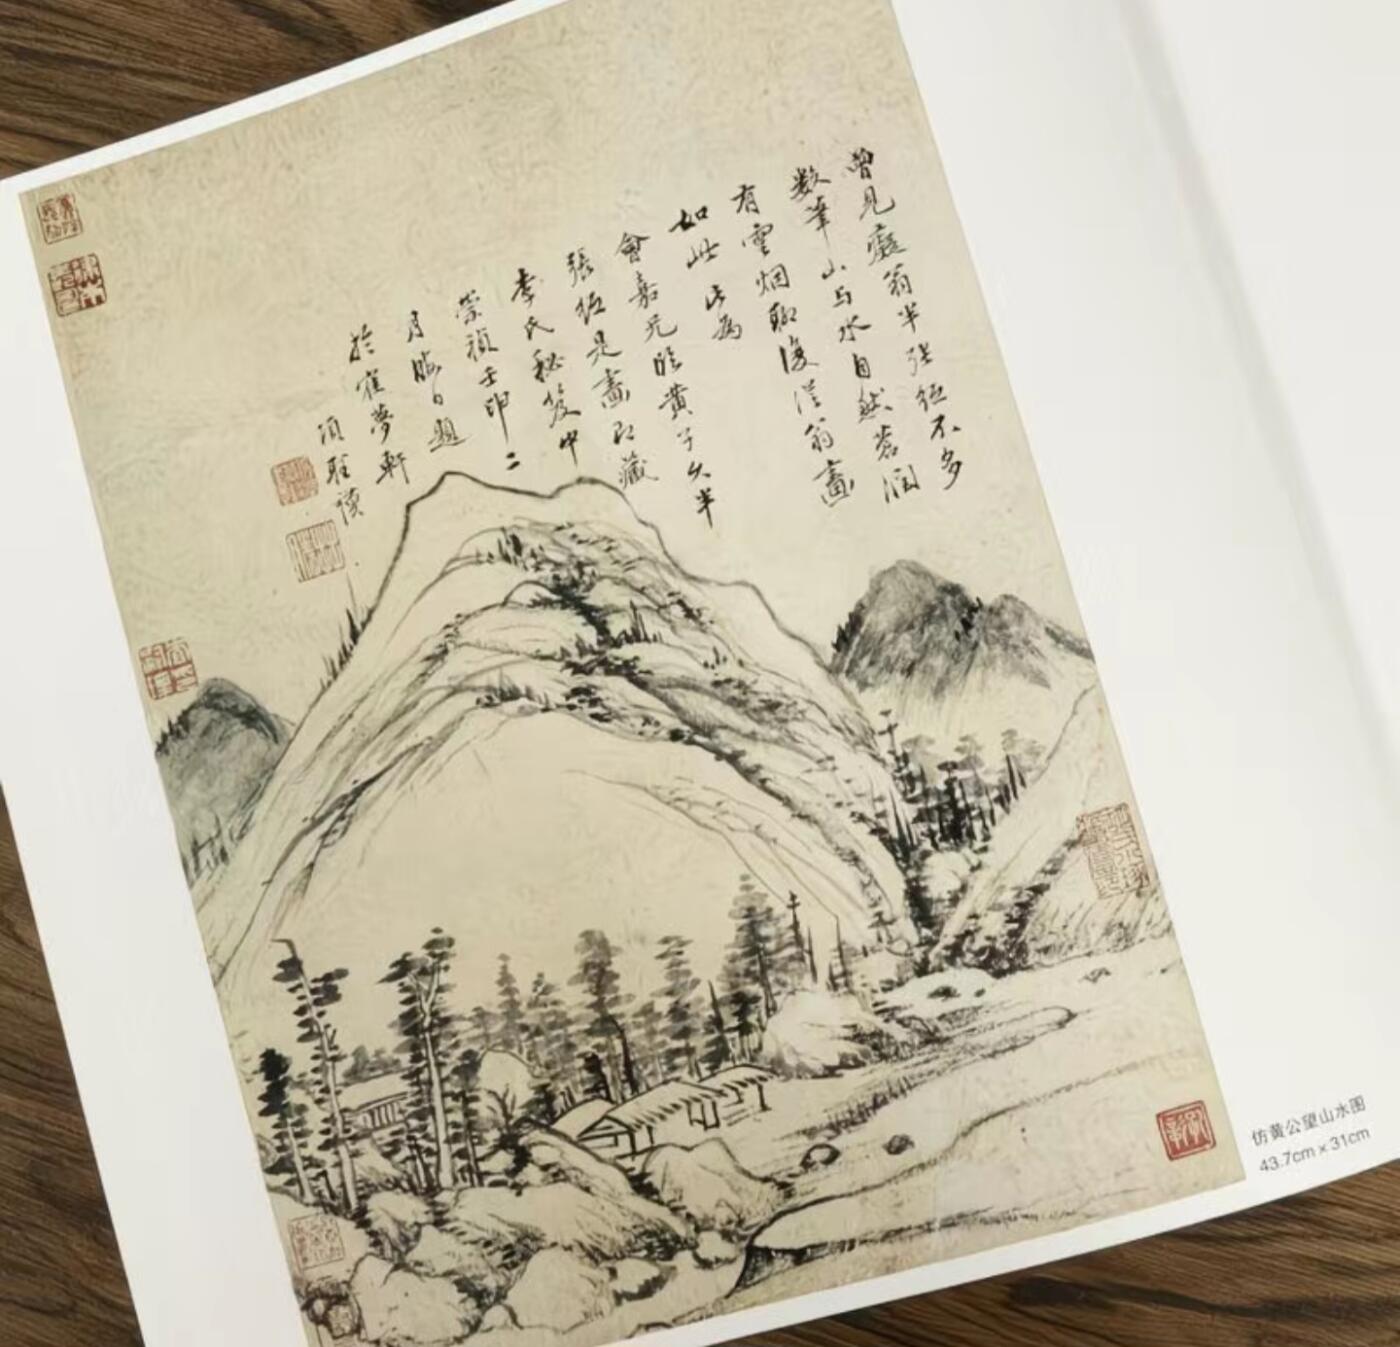 曾見癡翁半張紙不多
数筆山与水自然蒼潤
有雲烟聊復從翁畫
如此 此為
會嘉元臨黃子久半
張紙是畫即藏
李氏秘笈中
崇禎壬卯二
月晦日題
於寉夢軒
項聖謨
仿黄公望山水图
43.7cm x 31cm